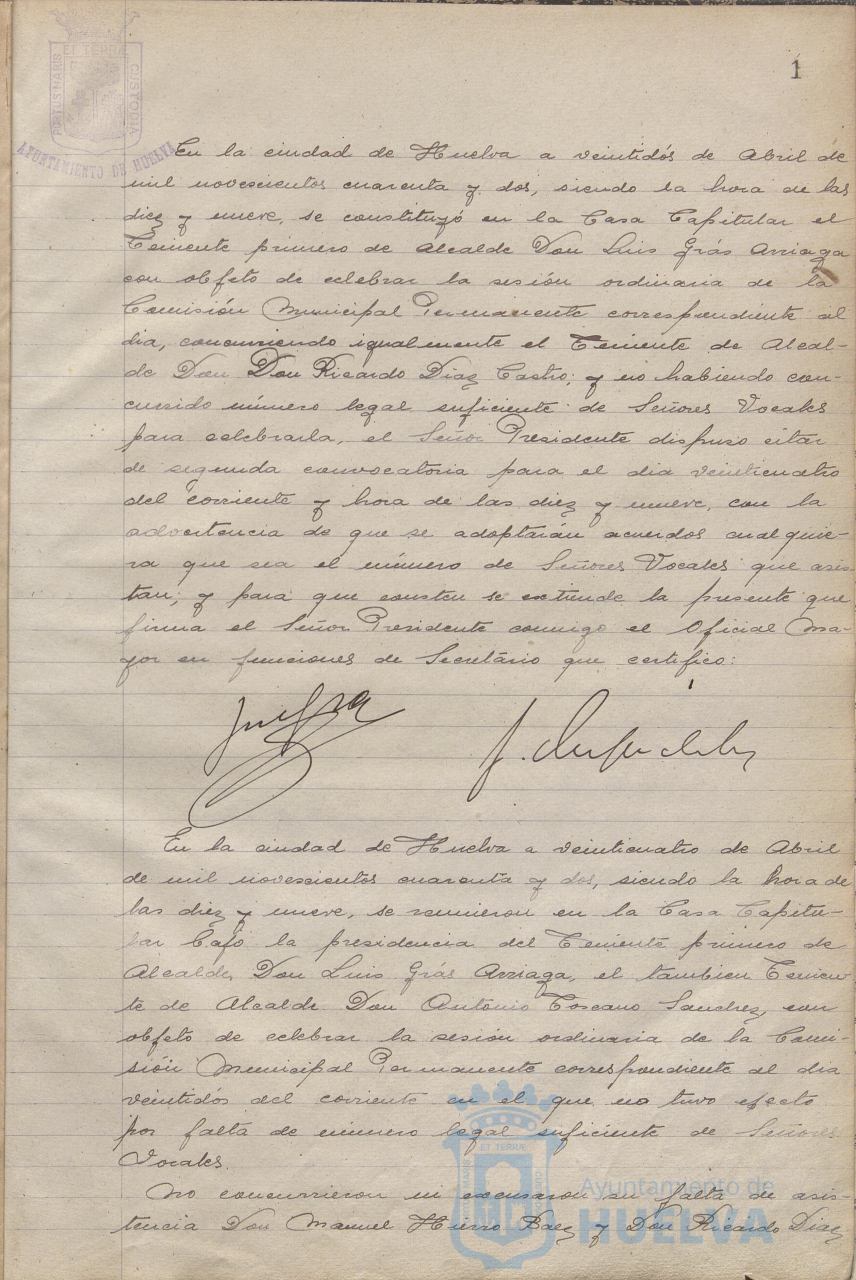 ET TERRÆ
PORTUS MARIS
CUSTODIA
AYUNTAMIENTO DE HUELVA
1
En la ciudad de Huelva a veintidós de Abril de
mil novescientos cuarenta y dos, siendo la hora de las
diez y nueve, se constituyó en la Casa Capitular el
Teniente primero de Alcalde Don Luis Grás Arriaga
con objeto de celebrar la sesión ordinaria de la
Comisión Municipal Permanente correspondiente al
dia, concurriendo igualmente el Teniente de Alcal-
de Don Don Ricardo Diaz Castro; y no habiendo con-
currido número legal suficiente de Señores Vocales
para celebrarla, el Señor Presidente dispuso citar
de segunda convocatoria para el dia veinticuatro
del corriente y hora de las diez y nueve, con la
advertencia de que se adoptarán acuerdos cualquie-
ra que sea el número de Señores Vocales que asis-
tan; y para que conste se extiende la presente que
firma el Señor Presidente conmigo el Oficial Ma-
yor en funciones de Secretário que certifico:
En la ciudad de Huelva a veinticuatro de Abril
de mil novescientos cuarenta y dos, siendo la hora de
las diez y nueve, se reunieron en la Casa Capitu-
lar bajo la presidencia del Teniente primero de
Alcalde, Don Luis Grás Arriaga, el tambien Tenien-
te de Alcalde Don Antonio Toscano Sanchez, con
objeto de celebrar la sesión ordinaria de la Comi-
sión Municipal Permanente correspondiente al dia
veintidós del corriente en el que no tuvo efecto
por falta de número legal suficiente de Señores
Vocales.
No concurrieron ni excusaron su falta de asis-
tencia Don Manuel Hierro Baez y Don Ricardo Diaz
ET TERRÆ
Ayuntamiento de
HUELVA